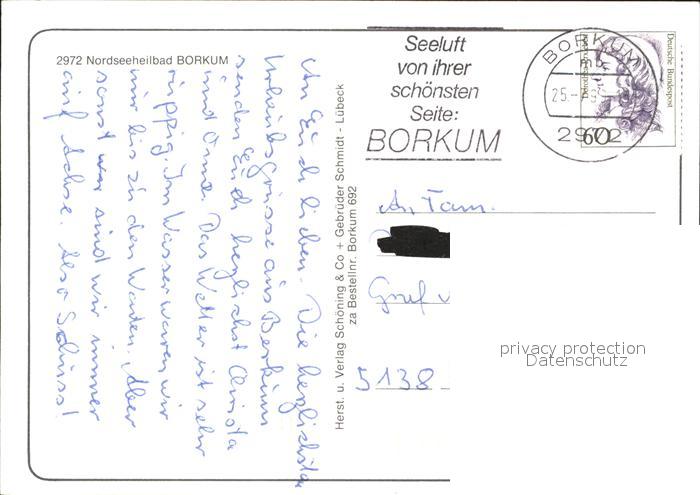 2972 Nordseeheilbad BORKUM
An Euch lieben. Die herzlichsten
Urlaubsgrüsse aus Borkum
senden Euch herzlichst Christa
und Oma. Das Wetter ist sehr
üppig. Im Wasser waren wir
nur bis zu den Waden. Aber
sonst wir sind wir immer
auf Achse. Also Schüss!
Herst. u. Verlag Schöning & Co + Gebrüder Schmidt - Lübeck
za Bestellnr. Borkum 692
Seeluft
von ihrer
schönsten
Seite:
BORKUM
BORKUM
25.-7.
2972
60
Deutsche Bundespost
An Fam.
Graf v
5138
privacy protection
Datenschutz